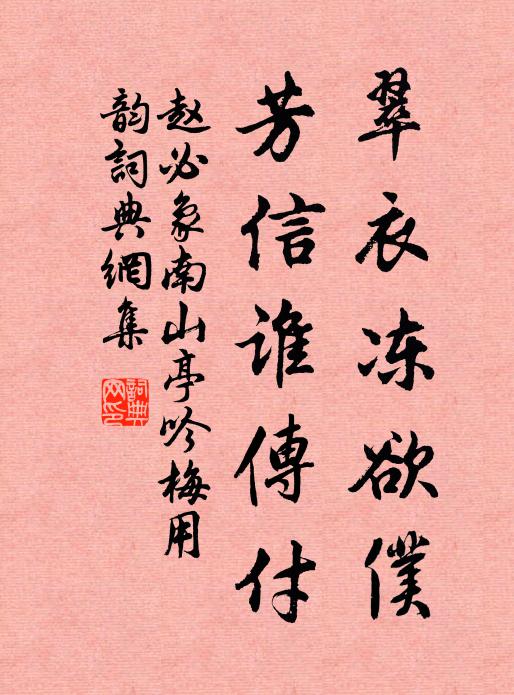 翠衣冻欲僕
芳信谁傳付
赵必象南山亭吟梅用
韵詞典網集
詞典网印